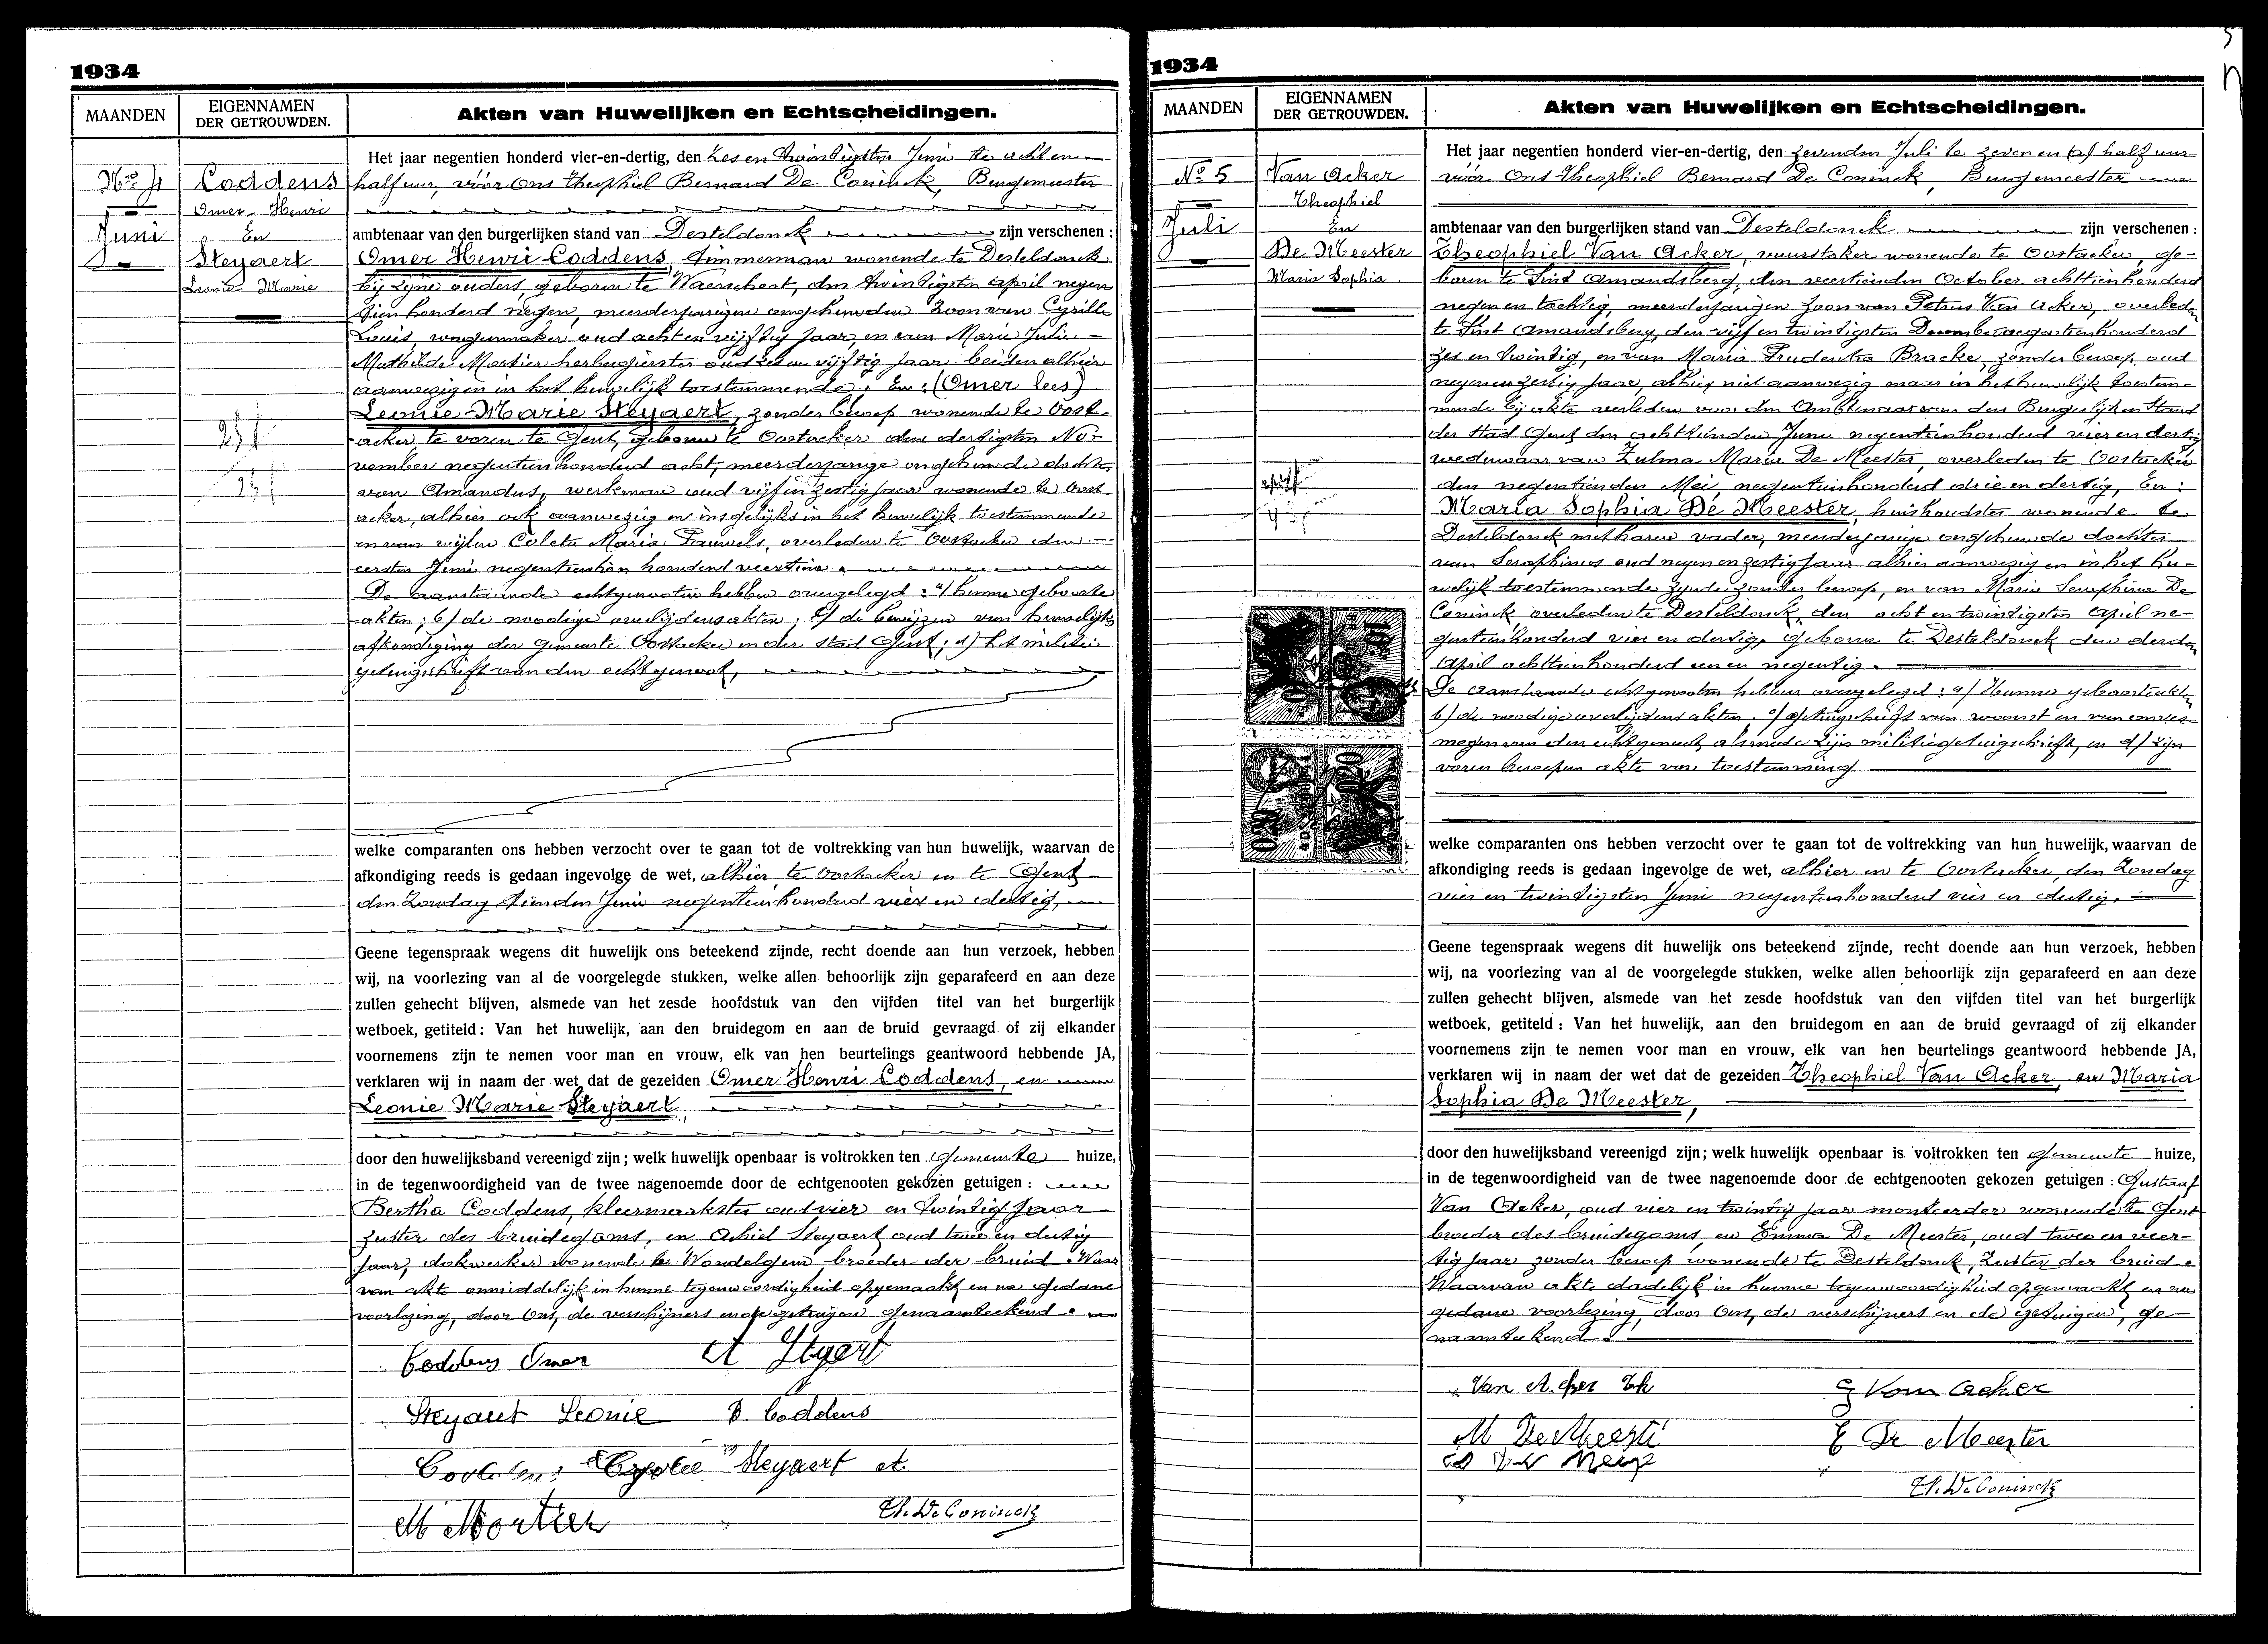 1934
MAANDEN
EIGENNAMEN
DER GETROUWDEN.
Akten van Huwelijken en Echtscheidingen.
No 4
Juni
Coddens
Omer Henri
En
Steyaert
Leonie Marie
Het jaar negentien honderd vier-en-dertig, den zes en twintigsten Juni te acht en
half uur, vóór Ons Theophiel Bernard De Coninck, Burgemeester
ambtenaar van den burgerlijken stand van Desteldonck zijn verschenen :
Omer Henri Coddens timmerman wonende te Desteldonck
bij zijne ouders, geboren te Waerschoot, den twintigsten April negen
tien honderd negen, meerderjarigen ongehuwden Zoon van Cyrille
Louis, wagenmaker oud acht en vijftig Jaar, en van Marie Julie
Mathilde Mortier herbergierster oud zes en vijftig Jaar beiden alhier
aanwezig en in het huwelijk toestemmende. En : (Omer lees)
Leonie Marie Steyaert, zonder beroep wonende te Oost-
acker te voren te Gent, geboren te Oostacker den dertigsten No-
vember negentienhonderd acht, meerderjarige ongehuwde dochter
van Amandus, werkman oud vijf en zestig Jaar wonende te Oost
acker, alhier ook aanwezig en insgelijks in het huwelijk toestemmende
en van wijlen Coleta Maria Pauwels, overleden te Oostacker den
eersten Juni negentienhon honderd veertien.
De aanstaande echtgenooten hebben overgelegd : a/ hunne geboorte
akten ; b/ de noodige overlijdensakten ; c/ de bewijzen van huwelijks
afkondiging der gemeente Oostacker en der stad Gent ; d/ het militie
getuigschrift van den echtgenoot,
welke comparanten ons hebben verzocht over te gaan tot de voltrekking van hun huwelijk, waarvan de
afkondiging reeds is gedaan ingevolge de wet, alhier te Oostacker en te Gent
den Zondag tienden Juni negentienhonderd vier en dertig,
Geene tegenspraak wegens dit huwelijk ons beteekend zijnde, recht doende aan hun verzoek, hebben
wij, na voorlezing van al de voorgelegde stukken, welke allen behoorlijk zijn geparafeerd en aan deze
zullen gehecht blijven, alsmede van het zesde hoofdstuk van den vijfden titel van het burgerlijk
wetboek, getiteld : Van het huwelijk, aan den bruidegom en aan de bruid gevraagd of zij elkander
voornemens zijn te nemen voor man en vrouw, elk van hen beurtelings geantwoord hebbende JA,
verklaren wij in naam der wet dat de gezeiden Omer Henri Coddens, en
Leonie Marie Steyaert,
door den huwelijksband vereenigd zijn ; welk huwelijk openbaar is voltrokken ten Gemeente huize,
in de tegenwoordigheid van de twee nagenoemde door de echtgenooten gekozen getuigen :
Bertha Coddens, kleermaakster oud vier en twintig Jaar
zuster des bruidegoms, en Achiel Steyaert oud twee en dertig
Jaar, dokwerker wonende te Wondelgem broeder der bruid. Waar
van akte onmiddelijk in hunne tegenwoordigheid opgemaakt en na gedane
voorlezing, door Ons, de verschijners en de getuigen genaamteekend.
Coddens Omer
A Steyaert
Steyaert Leonie
B Coddens
Coddens Cyrille
Steyaert at.
M Mortier
Th. De Coninck
1934
MAANDEN
EIGENNAMEN
DER GETROUWDEN.
Akten van Huwelijken en Echtscheidingen.
No 5
Juli
Van Acker
Theophiel
En
De Meester
Maria Sophia
Het jaar negentien honderd vier-en-dertig, den zevenden Juli te zeven en (a) half uur
vóór Ons Theophiel Bernard De Coninck, Burgemeester
ambtenaar van den burgerlijken stand van Desteldonck zijn verschenen :
Theophiel Van Acker, vuurstoker wonende te Oostacker, ge-
boren te Sint Amandsberg, den veertienden October achttienhonderd
negen en tachtig, meerderjarigen zoon van Petrus Van Acker, overleden
te Sint Amandsberg, den vijf en twintigsten December negentienhonderd
zes en twintig, en van Maria Prudentia Bracke, zonder beroep, oud
negen en zestig Jaar, alhier niet aanwezig maar in het huwelijk toestem-
mende bij akte verleden voor den Ambtenaar van den Burgerlijken Stand
der Stad Gent den achttienden Juni negentienhonderd vier en dertig
weduwaar van Zulma Maria De Meester, overleden te Oostacker
den negentienden Mei negentienhonderd drie en dertig, En :
Maria Sophia De Meester, huishoudster wonende te
Desteldonck met haren vader, meerderjarige ongehuwde dochter
van Seraphinus oud negen en zestig Jaar alhier aanwezig en in het hu-
welijk toestemmende zijnde zonder beroep, en van Marie Seraphine De
Coninck, overleden te Desteldonck, den acht en twintigsten April ne-
gentienhonderd vier en dertig, geboren te Desteldonck den derden
April achttienhonderd een en negentig.
De aanstaande echtgenooten hebben overgelegd : a/ Hunne geboorteakten
b/ de noodige overlijdensakten. c/ getuigschrift van woonst en van onver-
mogen van den echtgenoot, alsmede zijn militiegetuigschrift, en d/ zijn
voren beroepen akte van toestemming
welke comparanten ons hebben verzocht over te gaan tot de voltrekking van hun huwelijk, waarvan de
afkondiging reeds is gedaan ingevolge de wet, alhier en te Oostacker, den Zondag
vier en twintigsten Juni negentienhonderd vier en dertig.
Geene tegenspraak wegens dit huwelijk ons beteekend zijnde, recht doende aan hun verzoek, hebben
wij, na voorlezing van al de voorgelegde stukken, welke allen behoorlijk zijn geparafeerd en aan deze
zullen gehecht blijven, alsmede van het zesde hoofdstuk van den vijfden titel van het burgerlijk
wetboek, getiteld : Van het huwelijk, aan den bruidegom en aan de bruid gevraagd of zij elkander
voornemens zijn te nemen voor man en vrouw, elk van hen beurtelings geantwoord hebbende JA,
verklaren wij in naam der wet dat de gezeiden Theophiel Van Acker, en Maria
Sophia De Meester,
door den huwelijksband vereenigd zijn ; welk huwelijk openbaar is voltrokken ten Gemeente huize,
in de tegenwoordigheid van de twee nagenoemde door de echtgenooten gekozen getuigen : Gustaaf
Van Acker, oud vier en twintig Jaar monteerder wonende te Gent
broeder des bruidegoms, en Emma De Meester, oud twee en veer-
tig Jaar zonder beroep wonende te Desteldonck, Zuster der bruid.
Waarvan akte dadelijk in hunne tegenwoordigheid opgemaakt en na
gedane voorlezing, door Ons, de verschijners en de getuigen, ge-
naamteekend.
Van Acker Th
G Van Acker
M De Meester
E De Meester
Th. De Coninck